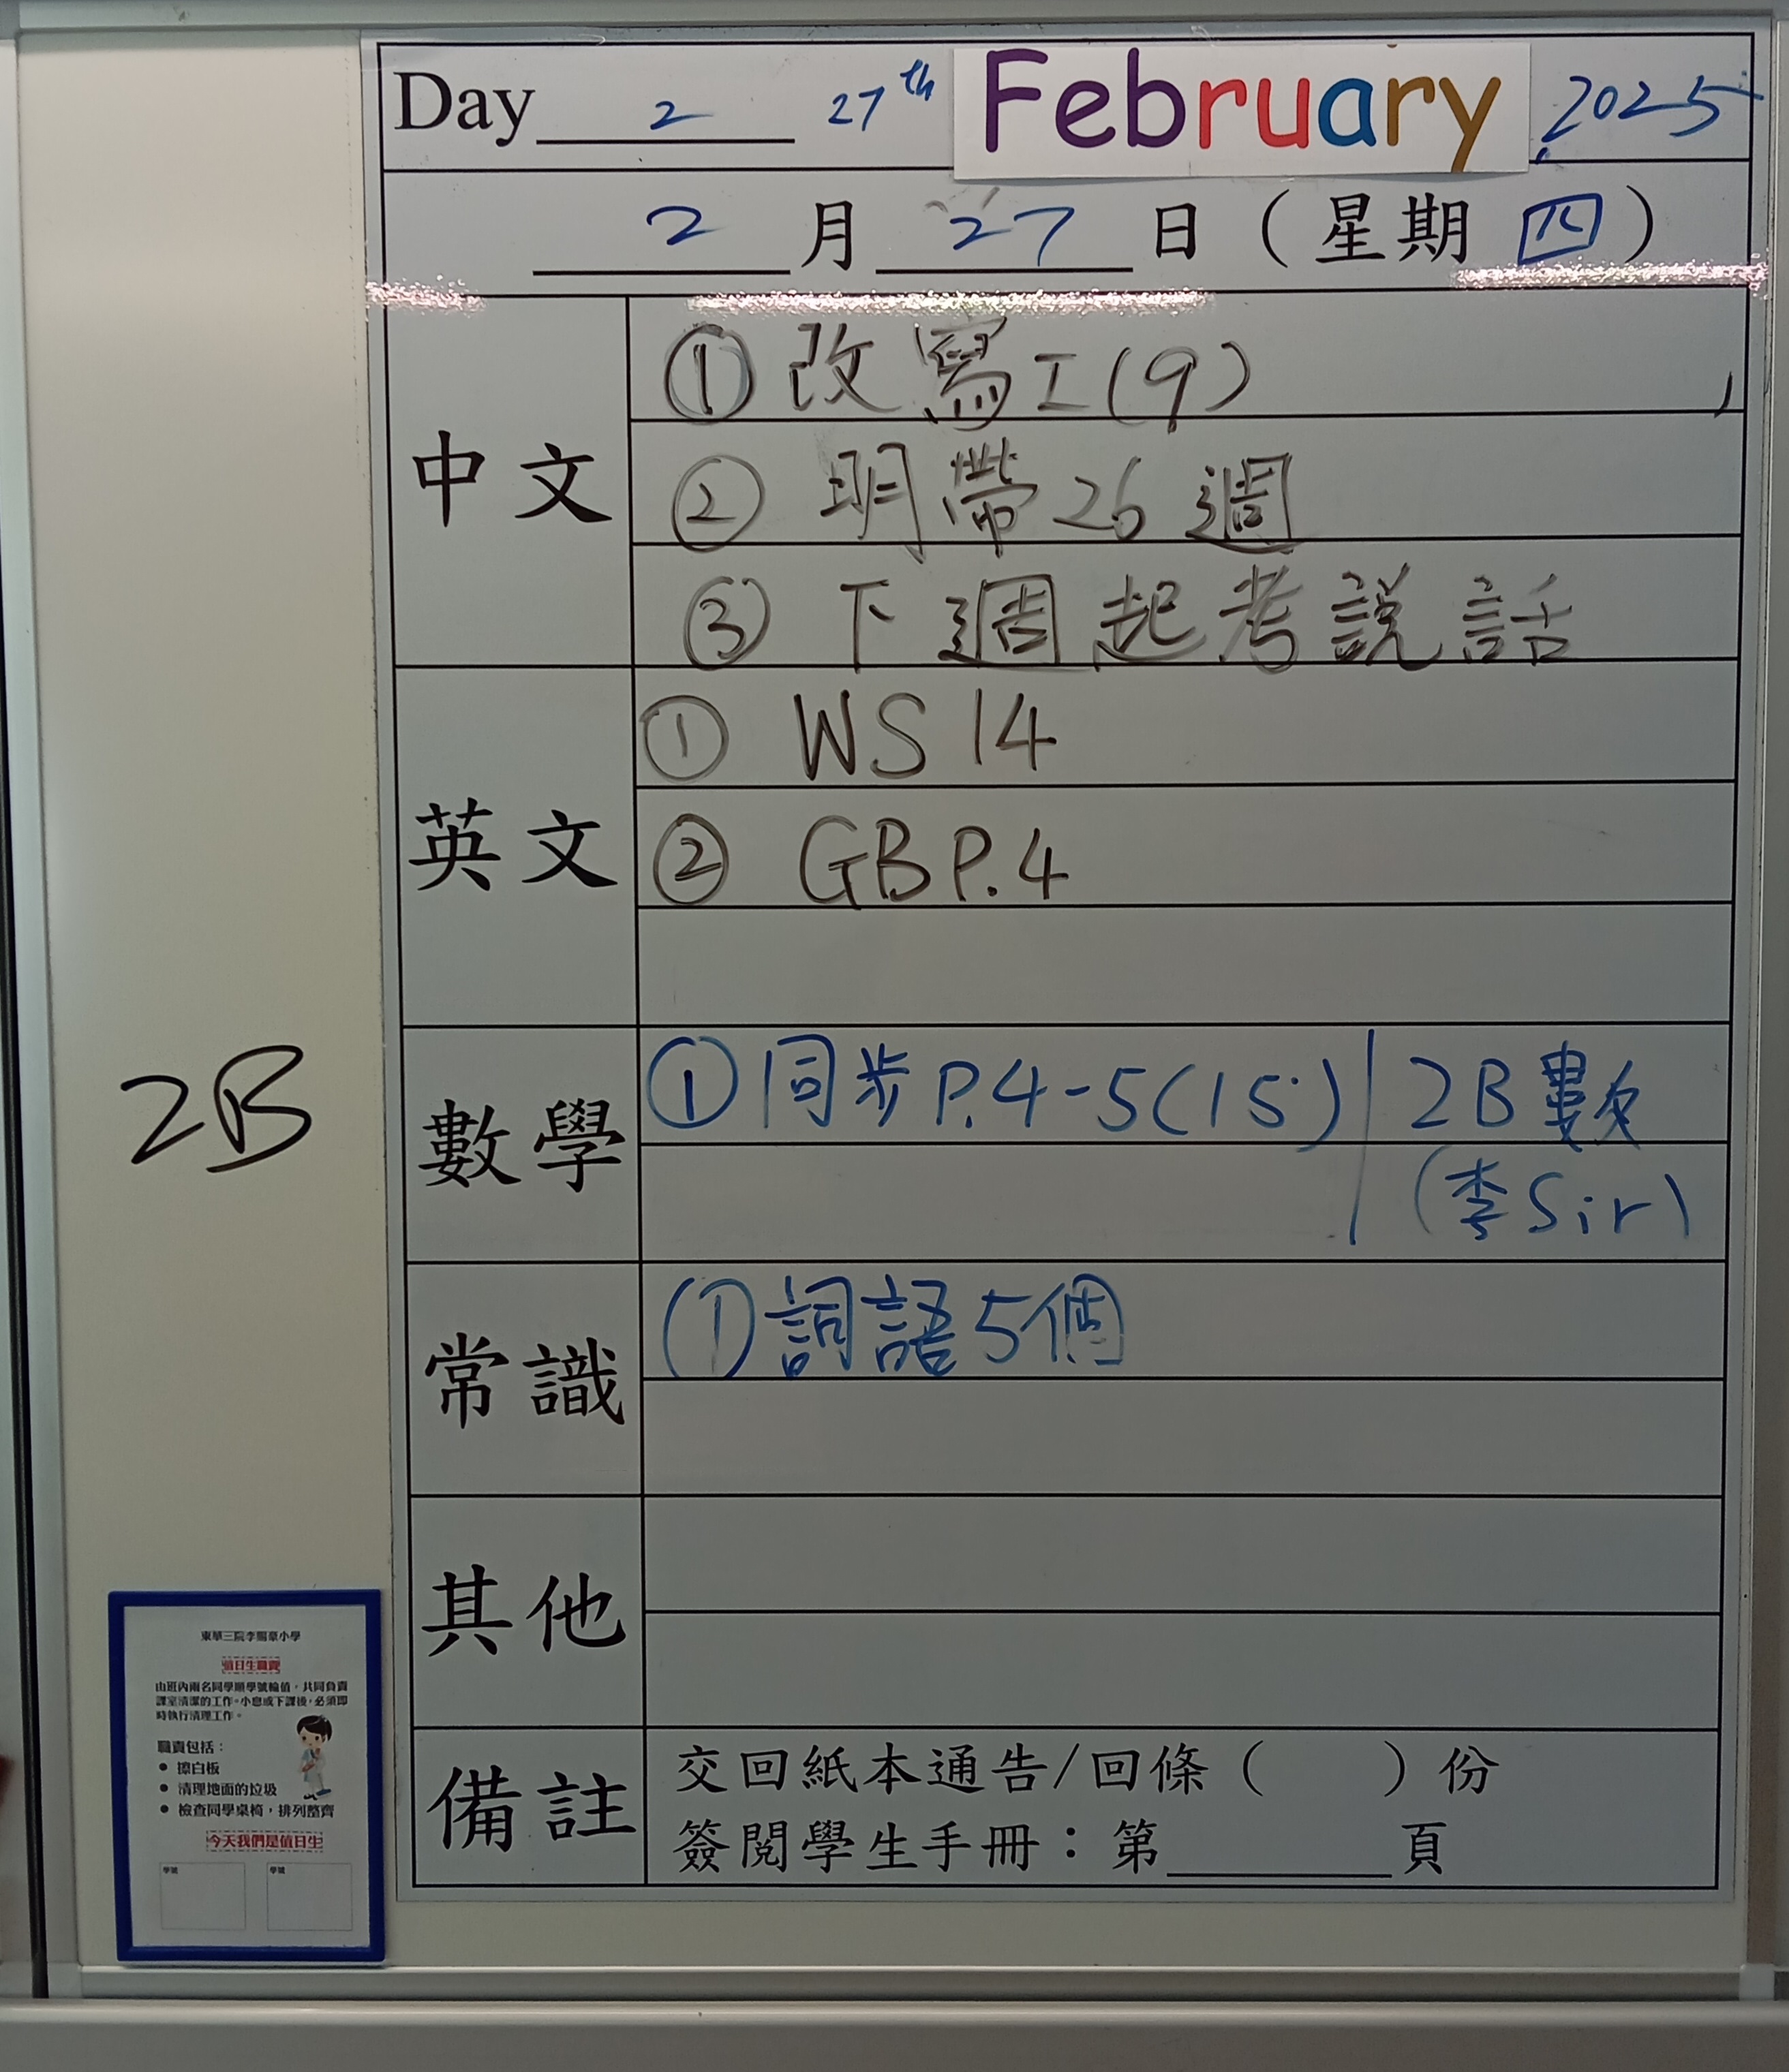 Day 2 27th February, 2025
2 月 27 日 (星期 四)
中文
① 改寫工(9)
② 明帶26週
③ 下週起考說話
英文
① WS 14
② GB P.4
數學
① 同步 P.4-5(15) 2B 數
(李Sir)
常識
① 詞語5個
其他
備註
交回紙本通告/回條 ( ) 份
簽閱學生手冊：第 頁
2B
東華三院李賜豪小學
值日生職責
由班內兩名同學順學號輪值，共同負責
課室清潔的工作。小息或下課後，必須即
時執行清理工作。
職責包括：
• 擦白板
• 清理地面的垃圾
• 檢查同學桌椅，排列整齊
今天我們是值日生
學號 學號